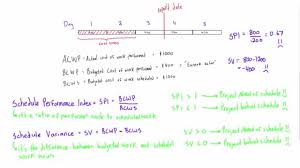 Day 1 2 3 4 5
ACWP = Actual cost of work performed = $1000
BCWP = Budgeted cost of work performed = $800 = "Earned value"
BCWS = Budgeted cost of work scheduled = $1200
SPI = 800/1200 = 0.67 !!
SV = 800-1200
= -400 !!
Schedule Performance Index = SPI = BCWP/BCWS
SPI > 1 Project Ahead of Schedule !!
SPI < 1 Project Behind Schedule !!
Schedule Variance = SV = BCWP - BCWS
SV > 0 Project Ahead of schedule !!
SV < 0 Project Behind schedule !!
It's the difference between budgeted work and scheduled